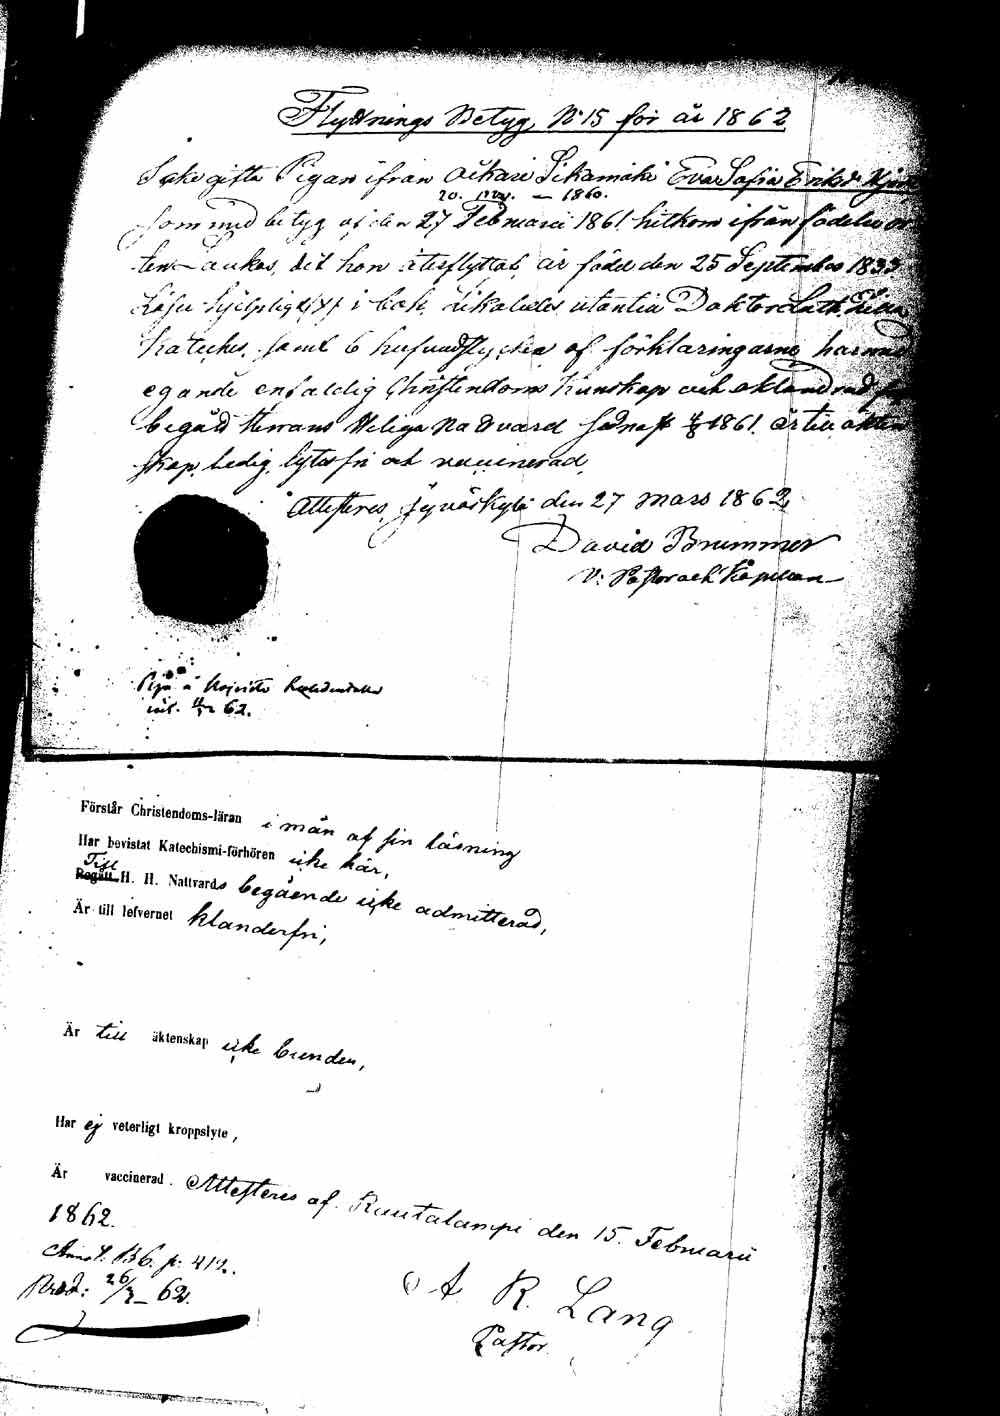 Flyttnings Betyg N:15 för år 1862
Icke gifta Pigan ifrån Sikamäki Eva Sofia Eriksd:r
20. Maj. — 1860.
som med betyg af den 27 Februarii 1861 hitkom ifrån födelse or
ten Laukas, dit hon återflyttat, är född den 25 September 1833
Läser hjelpligt i bok, likaledes utantill Doktor Luth. Lilla
Kateches, samt 6 hufvudstycken af förklaringarne
egande enfaldig Christendoms kunskap och oklandrad
begådt Herrans Heliga Nattvard sednast 1861. är till äkten
skap ledig, lytesfri och vaccinerad,
Attesteres Jyväskylä den 27 Mars 1862,
David Brummer
V: Pastor och Kapellan
62.
Förstår Christendoms-läran i mån af sin läsning
Har bevistat Katechismi-förhören icke här,
Till
Begått H. H. Nattvards begående icke admitterad,
Är till lefvernet klanderfri,
Är till äktenskap icke bunden,
Har ej veterligt kroppslyte,
Är vaccinerad. Attesteres af. Rautalampi den 15. Februarii
1862.
Annot. B6. p. 412.
Prod: 26/3 — 62.
A. R. Lang
Pastor.